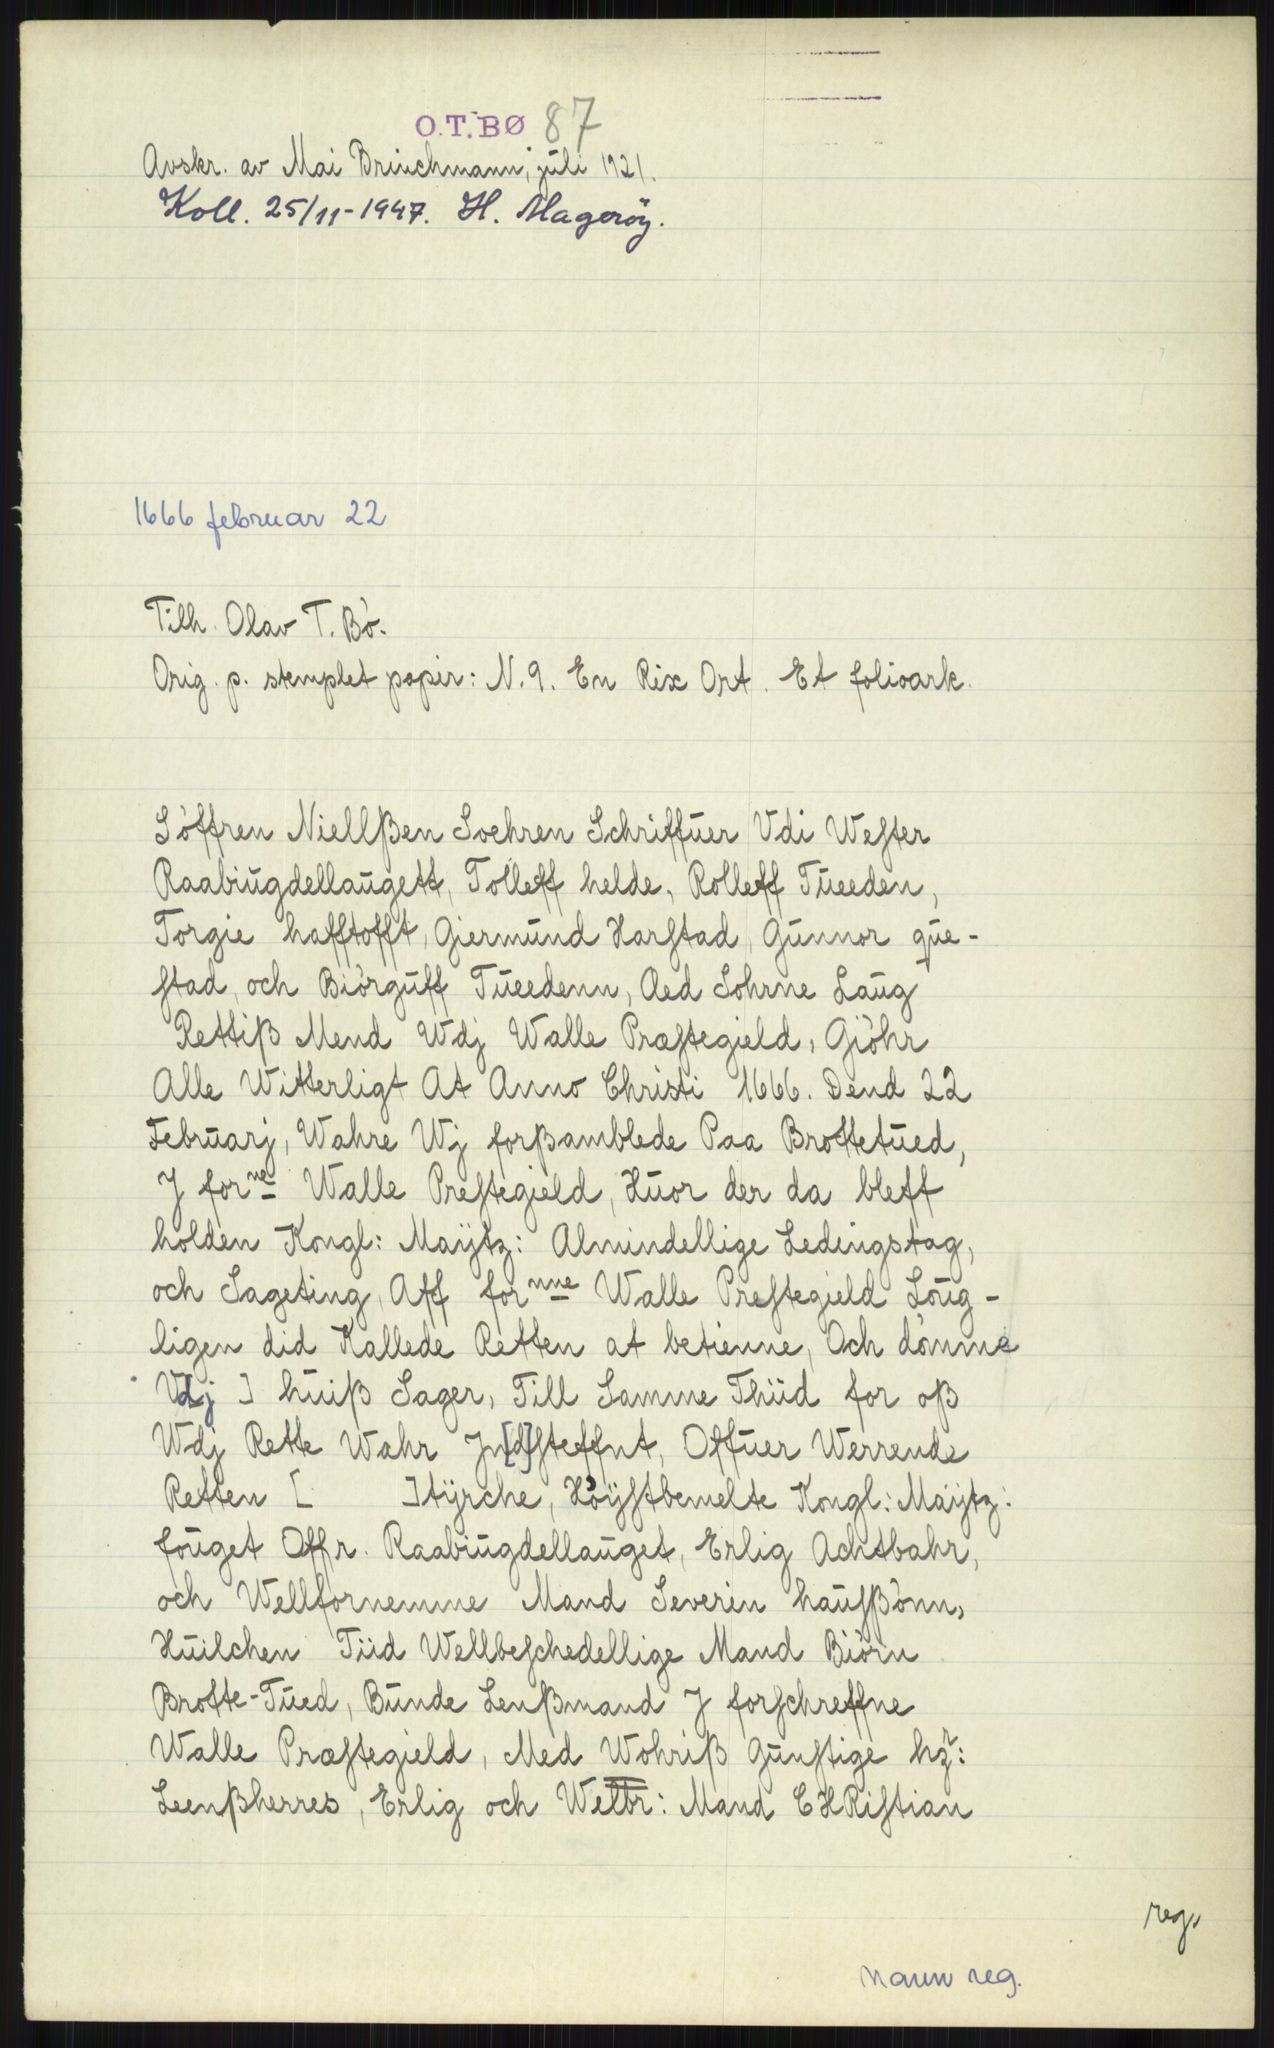 O.T.BØ 87
Avskr. av Mai Brinchmann, juli 1921.
Koll. 25/11-1947. H. Magerøy.
1666 februar 22
Tilh. Olav T. Bø.
Orig. p. stemplet papir: N.9. En Rix Ort. Et folioark.
Söffren Niellßen Soehren Schriffuer Vdi Wester
Raabiugdellaugett, Tolleff helde, Rolleff Tueeden,
Torgie hafftofft, Giermund Harstad, Gunnor que-
stad, och Biörguff Tueedenn, Aed Sohrne Laug
Rettiß Mend Wdj Walle Præstegield, Giöhr
Alle Witterligt At Anno Christi 1666. Dend 22
Februarj, Wahre Wj forßamblede Paa Brottetued,
J forne Walle Prestegield, Huor der da bleff
holden Kongl: Maÿtz: Almindellige Ledingstag,
och Sageting, Aff fornne Walle Prestegield Loug-
ligen did Kallede Retten at betienne, Och dömme
Vdj ] huiß Sager, Till Samme Thiid for oß
Wdj Rette Wahr Jn[d]steffnt, Offuer Werrende
Retten [ ]tÿrche, Höÿstbemelte Kongl: Maÿtz:
fouget Offr. Raabiugdellauget, Erlig Achtbahr,
och Wellfornemme Mand Severin haußßönn,
Huilchen Tiid Wellbeschedellige Mand Biörn
Brotte-Tued, Bunde Lenßmand J forschreffne
Walle Præstegield, Med Wohriß Gunstige hr:
Leenßherres, Erlig och Welbr: Mand CHRistian
reg.
Navn reg.